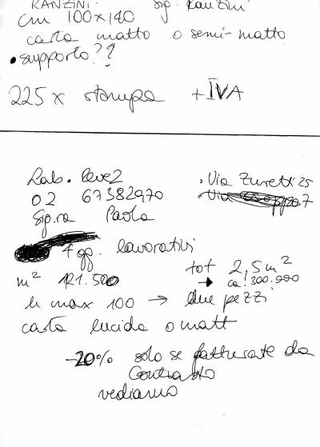 RANZINI: Sig. Ranzini
cm 100x140
carta matto o semi-matto
• supporto??
225 x stampa + IVA
Lab. • Via Zuretti 25
02 67382970 Via
Sig.ra Paola
7 gg. lavorativi
tot 2,5 m²
m² 121.500 → ca. 300.000
h max 100 → due pezzi
carta lucida o matt
-20% solo se fatturate da
Contrasto
vediamo